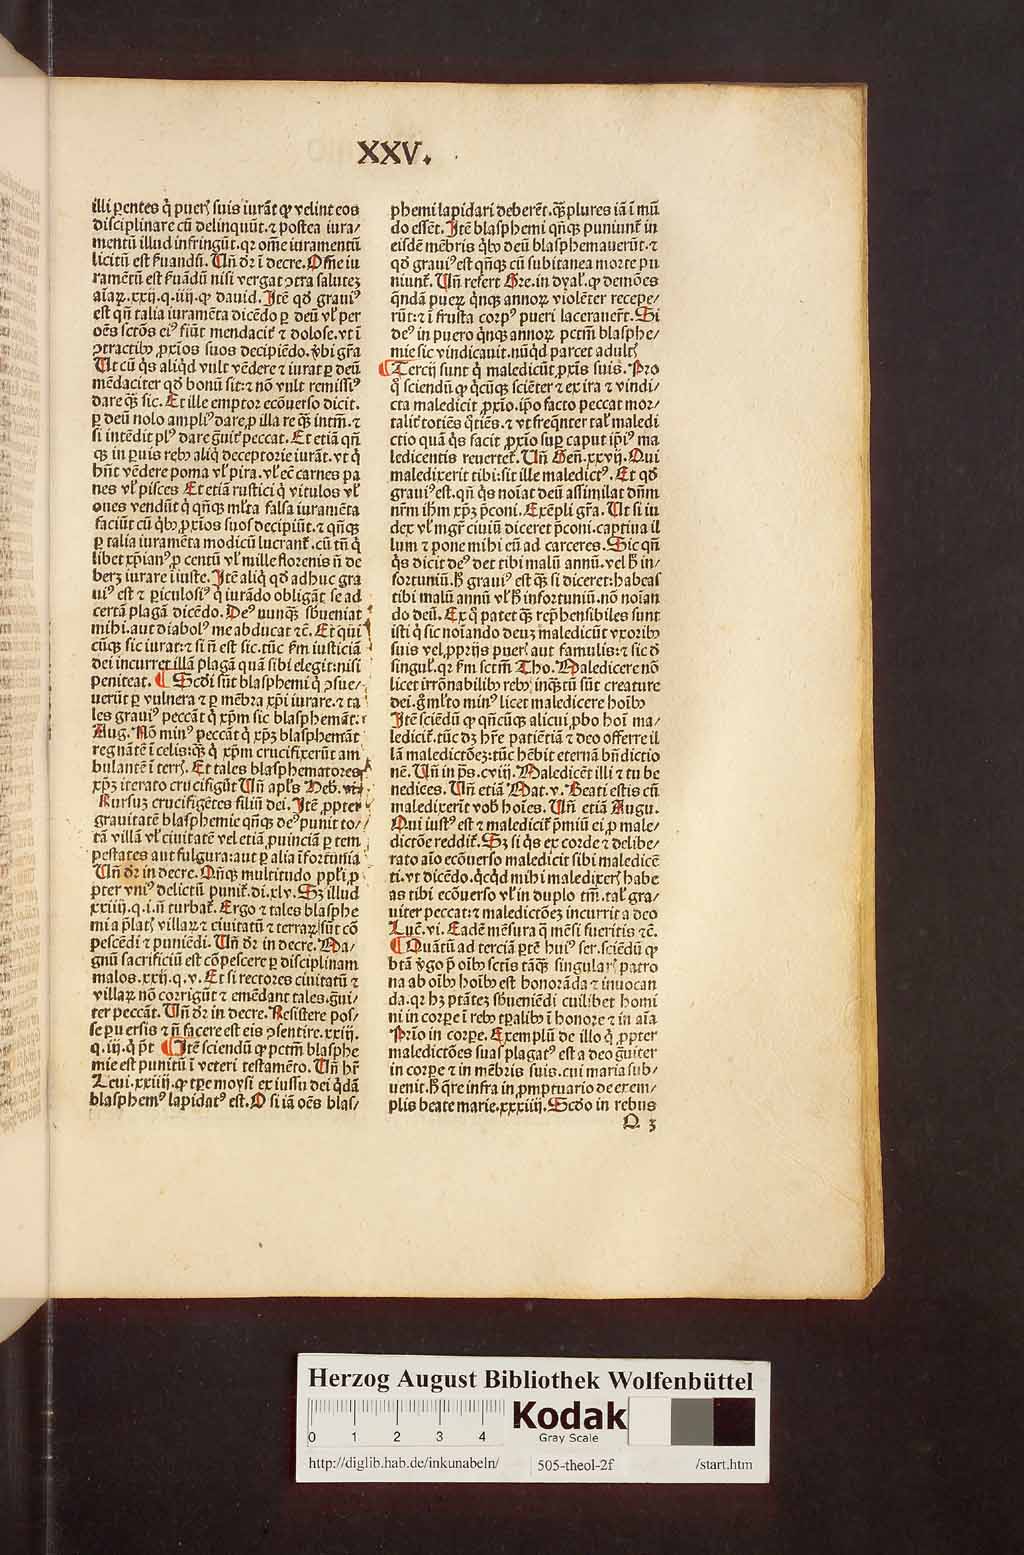 XXV.
illi ꝑentes q̇ pueꝝ suis iurāt ꝙ velint eos
disciplinare cū delinquūt.⁊ postea iura/
mentū illud infringūt.qꝛ om̄e iuramentū
licitū est ẜuandū. Uñ dꝛ ī decre. Om̄e iu
ramētū est ẜuandū nisi vergat ꝯtra salutez
aīaꝝ.xxij.q.iiij.ꝙ dauid. Itē qđ grauiꝰ
est qñ talia iuramēta dicēdo ꝑ deū vł per
oēs sctōs eiꝰ fiūt mendacit̉ ⁊ dolose.vt ī
ꝯtractibꝰ ꝓxīos suos decipiēdo.v̉bi gr̄a
Ut cū q̇s aliq̇d vult vēdere ⁊ iurat ꝑ deū
mēdaciter qđ bonū sit:⁊ nō vult remissiꝰ
dare q̄ꝫ sic. Et ille emptor ecōuerso dicit.
ꝑ deū nolo ampliꝰ dare,ꝓ illa re q̄ꝫ intm̄.⁊
si intēdit plꝰ dare g̈uit̉ peccat. Et etiā qñ
q̇s in ꝑuis rebꝰ aliq̇ deceptorie iurāt.vt q̇
hñt vēdere poma vł pira.vł ec̄ carnes pa
nes vł pisces Et etiā rustici q̇ vitulos vł
oues vendūt q̇ qñqꝫ ml̉ta falsa iuramēta
faciūt cū q̇bꝰ ꝓxīos suos decipiūt.⁊ qñqꝫ
ꝑ talia iuramēta modicū lucrant̉.cū tñ q̇
libet xp̄ianꝰ ꝓ centū vł mille florenis ñ de
berꝫ iurare īiuste. Itē aliq̇ qđ adhuc gra
uiꝰ est ⁊ ꝑiculosiꝰ q̇ iurādo obligāt se ad
certā plagā dicēdo. Deꝰ nunqꝫ s̉bueniat
mihi.aut diabolꝰ me abducat ⁊c̄. Et qūi
cūqꝫ sic iurat:⁊ si ñ est sic.tūc ẜm iusticiā
dei incurret illā plagā quā sibi elegit:nisi
peniteat. ¶ Scđi sūt blasphemi q̇ ꝯsue/
uerūt ꝑ vulnera ⁊ ꝑ mēbra xp̄i iurare.⁊ ta
les grauiꝰ peccāt q̇ xp̄m sic blasphemāt.
Aug. Nō minꝰ peccāt q̇ xp̄ꝫ blasphemāt
regnātē ī celis:q̄ꝫ q̇ xp̄m crucifixerūt am
bulantē ī terrꝭ. Et tales blasphematores
xp̄ꝫ iterato crucifigūt Uñ apl̄s Heb. vi.
Rursuꝫ crucifigētes filiū dei. Itē ꝓpter
grauitatē blasphemie qñqꝫ deꝰ punit to/
tā villā vł ciuitatē vel etiā ꝓuinciā ꝑ tem
pestates aut fulgura:aut ꝑ alia īfortunia
Uñ dꝛ in decre. Qñqꝫ multitudo ppl̄i ꝓ
pter vniꝰ delictū punit̉.di.xlv. Sꝫ illud
xxiiij.q.i.ñ turbat̉. Ergo ⁊ tales blasphe
mi a p̄latꝭ villaꝝ ⁊ ciuitatū ⁊ terraꝝ sūt cō
pescēdi ⁊ puniēdi. Uñ dꝛ in decre. Ma/
gnū sacrificiū est cōpescere ꝑ disciplinam
malos.xxij.q.v. Et si rectores ciuitatū ⁊
villaꝝ nō corrigūt ⁊ emēdant tales.g̈ui/
ter peccāt. Uñ dꝛ in decre. Resistere pos/
se ꝑuersis ⁊ ñ facere est eis ꝯsentire.xxiij.
q.iij.q̇ p̄t ¶ Itē sciendū ꝙ pctm̄ blasphe
mie est punitū ī veteri testamēto. Uñ hr̄
Leui.xxiiij.ꝙ tꝑe moysi ex iussu dei q̇dā
blasphemꝰ lapidatꝰ est. O si iā oēs blas/
phemi lapidari deberēt.q̄ꝫ plures iā ī mū
do essēt. Itē blasphemi qñqꝫ puniunt̉ in
eisdē mēbris q̇bꝰ deū blasphemauerūt.⁊
qđ grauiꝰ est qñqꝫ cū subitanea morte pu
niunt̉. Uñ refert Gre.in dyal̉.ꝙ demōes
q̄ndā pueꝝ q̇nqꝫ annoꝝ violēter recepe/
rūt:⁊ ī frusta corpꝰ pueri lacerauerūt. Si
deꝰ in puero q̇nqꝫ annoꝝ pctm̄ blasphe/
mie sic vindicauit.nūq̇d parcet adultꝭ
¶ Tercij sunt q̇ maledicūt ꝓxīs suis. Pro
q̊ sciendū ꝙ q̇cūqꝫ sciēter ⁊ ex ira ⁊ vindi/
cta maledicit ꝓxīo.ip̄o facto peccat mor/
talit̉ totiēs q̊tiēs.⁊ vt freq̄nter tal̉ maledi
ctio quā q̇s facit ꝓxīo sup̱ caput ip̄iꝰ ma
ledicentis reuertet̉. Uñ Geñ.xxvij. Qui
maledixerit tibi:sit ille maledictꝰ. Et qđ
grauiꝰ est.qñ q̇s noīat deū assimilat dñm
nr̄m ih̄m xp̄ꝫ p̄coni. Exēpli gr̄a. Ut si iu
dex vł mgr̄ ciuiū diceret p̄coni.captiua il
lum ⁊ pone mihi eū ad carceres. Sic qñ
q̇s dicit deꝰ det tibi malū annū.vel h̄ in/
fortuniū.h̄ grauiꝰ est q̄ꝫ si diceret:habeas
tibi malū annū vł h̄ infortuniū.nō noīan
do deū. Ex q̊ patet q̄ꝫ rep̄hensibiles sunt
isti q̇ sic noīando deuꝫ maledicūt vxoribꝰ
suis vel ꝓprijs puerꝭ aut famulis:⁊ sic đ
singul̉.qꝛ ẜm sctm̄ Tho. Maledicere nō
licet irrōnabilibꝰ rebꝰ inq̄ꝫtū sūt creature
dei.g̊ ml̉to minꝰ licet maledicere hoībꝰ
Itē sciēdū ꝙ qñcūqꝫ alicui ꝓbo hoī ma/
ledicit̉.tūc dꝫ hr̄e patiētiā ⁊ deo offerre il
lā maledictōeꝫ:tūc hēbit eternā bñdictio
nē. Uñ in ps̄.cviij. Maledicēt illi ⁊ tu be
nedices. Uñ etiā Mat.v. Beati estis cū
maledixerīt vob̄ hoīes. Uñ etiā Augu.
Qui iustꝰ est ⁊ maledicit̉ p̄miū ei ꝓ male/
dictōe reddit̉. Sꝫ si q̇s ex corde ⁊ delibe/
rato aīo ecōuerso maledicit sibi maledicē
ti.vt dicēdo.q̇cq̇d mihi maledixerꝭ habe
as tibi ecōuerso vł in duplo tm̄.tal̉ gra/
uiter peccat:⁊ maledictōeꝫ incurrit a deo
Luc̄.vi. Eadē mēsura q̄ mēsi fueritis ⁊c̄.
¶ Quātū ad terciā ꝑtē huiꝰ ser.sciēdū ꝙ
btā v̉go p̄ oībꝰ sctīs tāq̄ꝫ singularꝭ patro
na ab oībꝰ hoībꝰ est honorāda ⁊ inuocan
da.qꝛ hꝫ ptāteꝫ s̉bueniēdi cuilibet homi
ni in corꝑe ī rebꝰ tꝑalibꝰ ī honore ⁊ in aīa
Prīo in corꝑe. Exemplū de illo q̇ ꝓpter
maledictōes suas plagatꝰ est a deo g̈uiter
in corꝑe ⁊ in mēbris suis.cui maria sub/
uenit.h̄ q̄re infra in ꝓmptuario de exem/
plis beate marie.xxxiiij. Scđo in rebus
Q 3
Herzog August Bibliothek Wolfenbüttel
0 1 2 3 4
Kodak
Gray Scale
http://diglib.hab.de/inkunabeln/ 505-theol-2f /start.htm